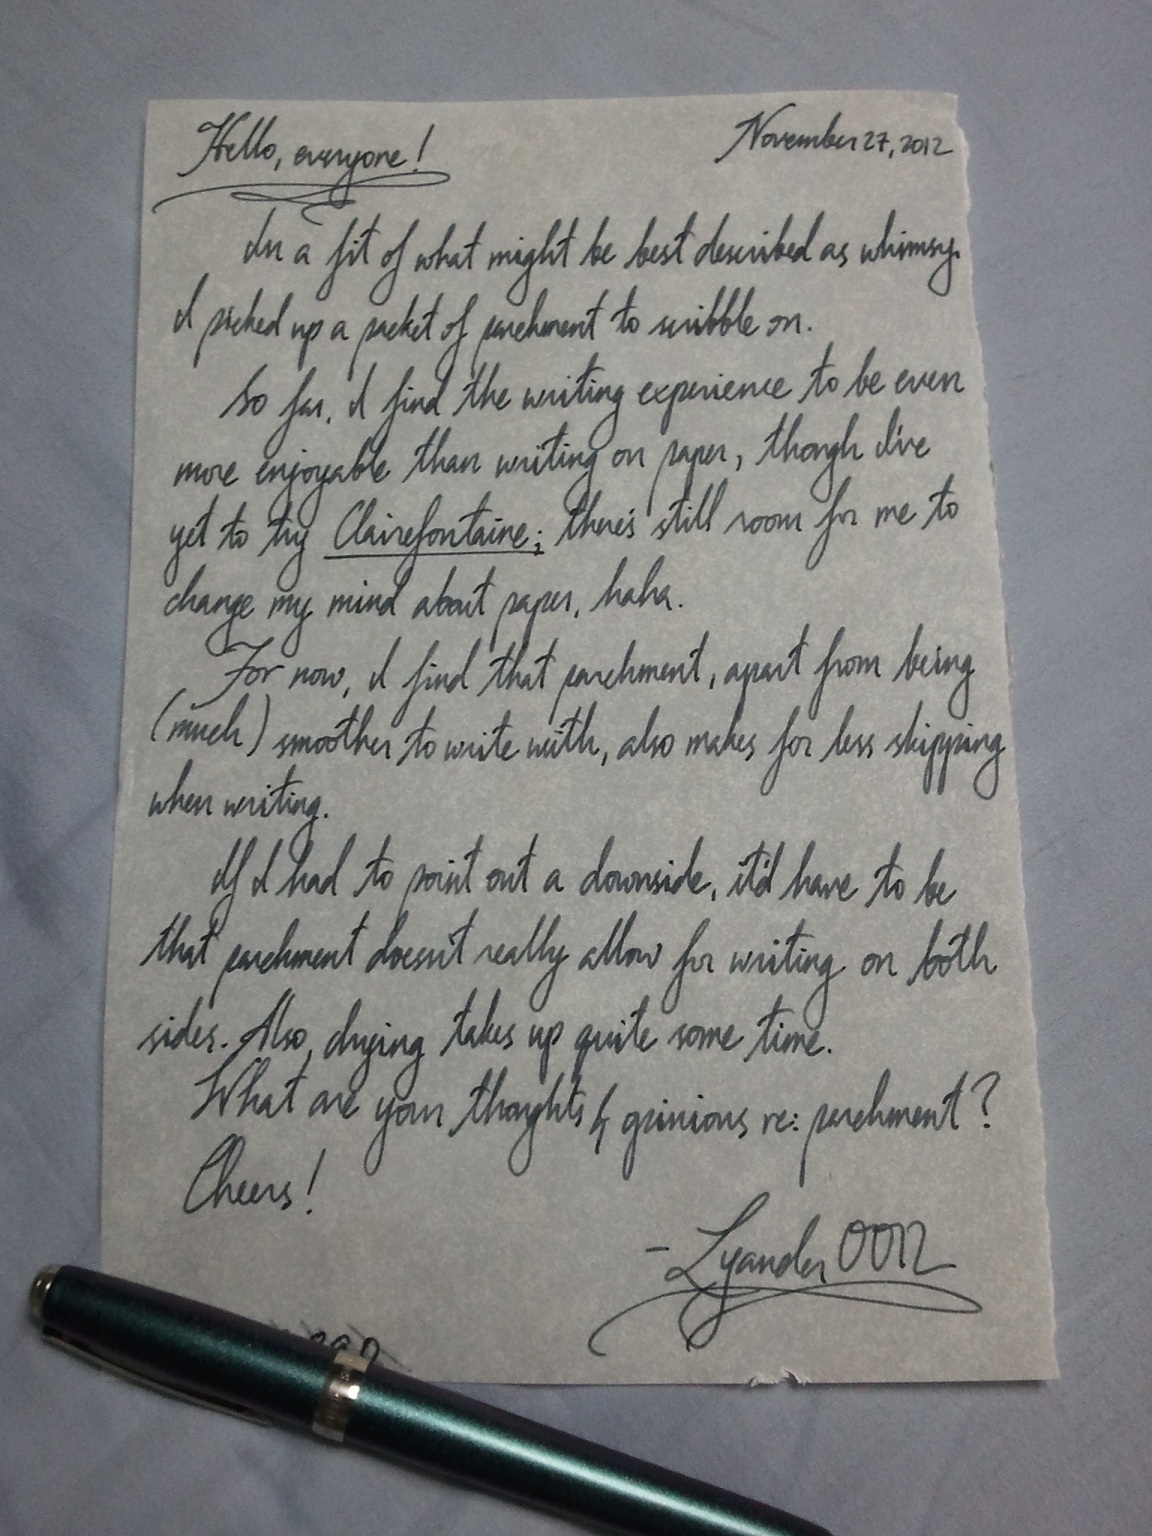 Hello, everyone!
November 27, 2012
In a fit of what might be best described as whimsy,
I picked up a packet of parchment to scribble on.
So far, I find the writing experience to be even
more enjoyable than writing on paper, though I've
yet to try Clairefontaine; there's still room for me to
change my mind about paper, haha.
For now, I find that parchment, apart from being
(much) smoother to write with, also makes for less skipping
when writing.
If I had to point out a downside, it'd have to be
that parchment doesn't really allow for writing on both
sides. Also, drying takes up quite some time.
What are your thoughts & opinions re: parchment?
Cheers!
- Lyander 0012